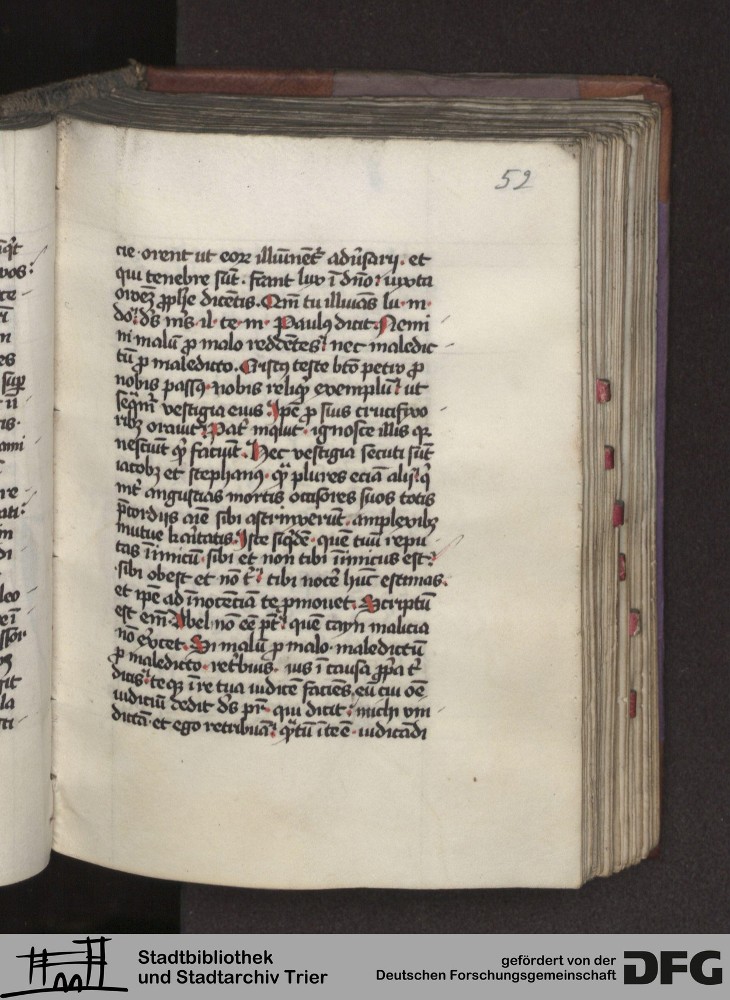 52
cie · orent ut eorꝝ illumīent̄ adūsarij . et
qui tenebre sūt . fiant lux ī dn̄o : iuxta
dicētis . Qm̄ tu illumīas lu · m ·
do : ds̄ ms̄ · il · te · m · Paulus dicit : Nemi
ni malū p malo reddētes : nec maledic
tū p maledicto . Cristus teste bt̄o petro p
nobis passꝯ · nobis reliqͥ exemplū : ut
seqm̄r vestigia eius . Ipē p suis crucifixo
ribꝫ orauit : Pat̄ inqͥt · ignosce illis qꝛ
nesciūt qͥ faciūt . Hec vestigia secuti sūt
iacobꝫ et stephanꝯ · plures eciā alij : qͥ
int̄ angustias mortis occisores suos totis
p̄cordiis sibi astrinxerūt · amplexibꝫ
mutue kaͥtatis . Iste siqͥdē · quē tuū repu
tas īimicū · sibi et non tibi īimicus est :
sibi obest et nō t̄ : tibi nocē hūc estimas .
et ipē ad īnocēciā te pmouet . Scriptū
est em̄ Abel nō eē pt̄ : quē cayn malicia
nō ex̄cet . Si malū p malo · maledictū
p maledicto · ret̄buis · ius ī causa ppͥa
dicis : teqꝫ ī re tua iudicē faciēs . eū cui oē
iudiciū dedit ds̄ pr̄ · qui dicit : michi vin
dictā · et ego retribuā : qͣtū ī te ē · iudicādi
Stadtbibliothek
und Stadtarchiv Trier
gefördert von der
Deutschen Forschungsgemeinschaft
DFG